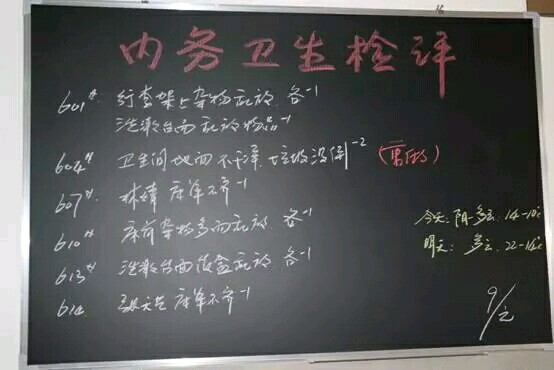 内务卫生检评
601# 行李架上杂物乱放 各-1
洗漱台面乱放物品-1
604# 卫生间地面不干净,垃圾没倒-2
607# 林靖 床单不齐-1
610# 床前杂物多而乱放 各-1
今天: 阴-多云. 14-10℃
明天: 多云. 22-14℃
613# 洗漱台面饭盒乱放 各-1
614 床单不齐-1